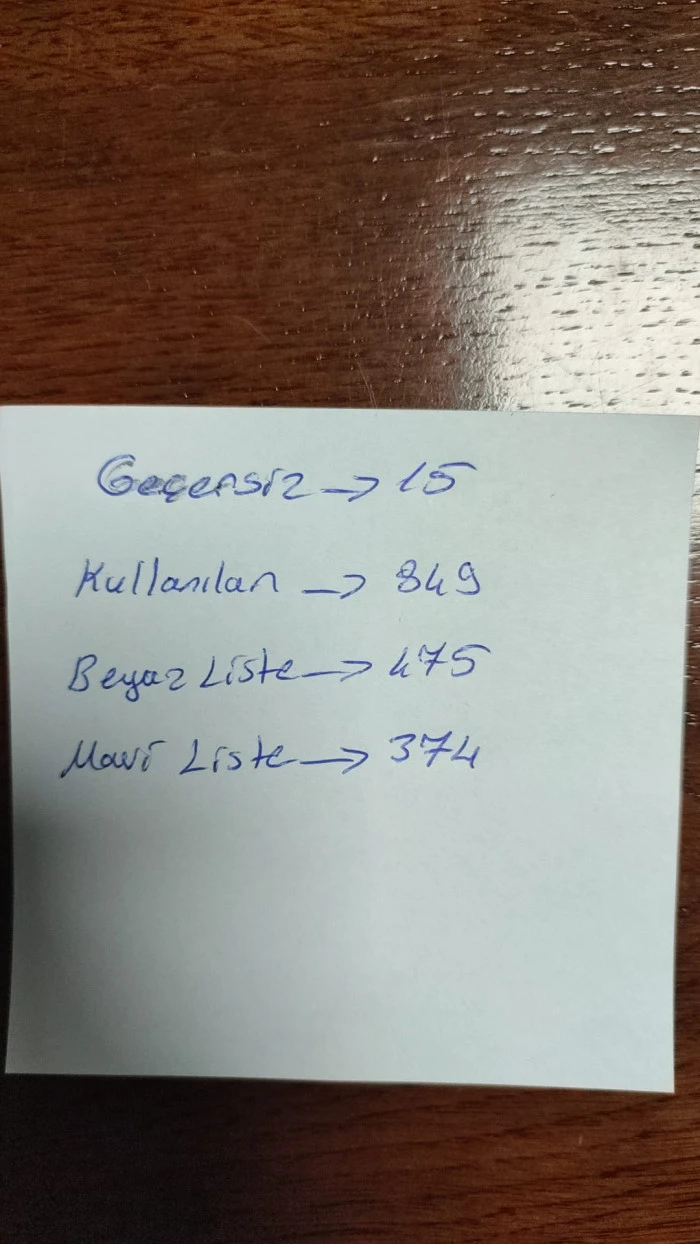 Geçersiz → 15
Kullanılan → 849
Beyaz Liste → 475
Mavi Liste → 374